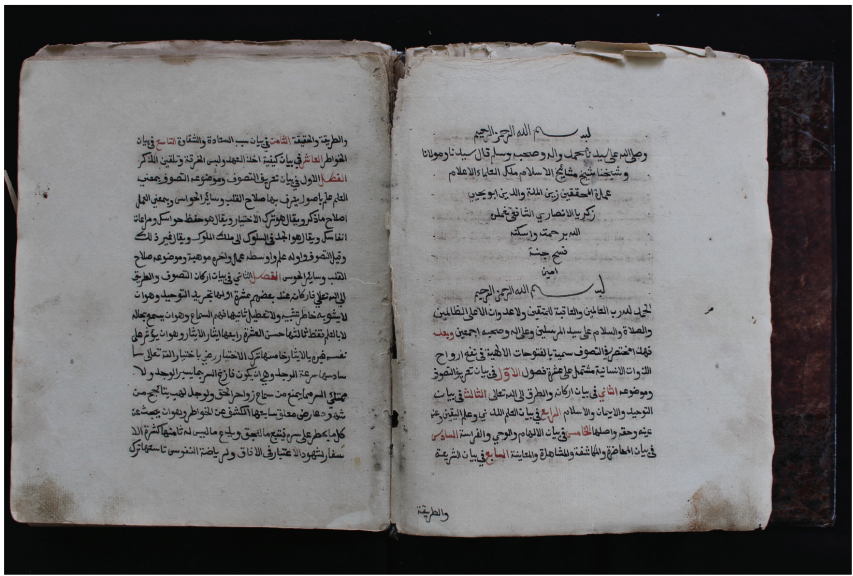 بسم الله الرحمن الرحيم
وصلى الله على سيدنا محمد واله وصحبه وسلم قال سيدنا ومولانا
وشيخنا شيخ مشايخ الاسلام ملك العلماء الاعلام
عمدة المحققين زين الملة والدين ابو يحيى
زكريا الانصاري الشافعي تغمده
الله برحمته واسكنه
فسيح جنته
امين
بسم الله الرحمن الرحيم
الحمد لله رب العالمين والعاقبة للمتقين ولا عدوان الا على الظالمين
والصلاة والسلام على سيد المرسلين وعلى اله وصحبه اجمعين وبعد
فهذا مختصر في التصوف سميته بالفتوحات الالهية في نفع ارواح
الذوات الانسانية مشتمل على عشرة فصول الاول في بيان تعريف التصوف
وموضوعه الثاني في بيان اركان والطرق الى الله تعالى الثالث في بيان
التوحيد والايمان والاسلام الرابع في بيان العلم اللدني وعلم اليقين وعن
عينه وحقه واصلها الخامس في بيان الالهام والوحي والفراسة السادس
في بيان المحاضرة والمكاشفة والمشاهدة والمعاينة السابع في بيان الشريعة
والطريقة
والطريقة والحقيقة الثامن في بيان سبب السعادة والشقاوة التاسع في بيان
الخواطر العاشر في بيان كيفية اخذ العهد ولبس الخرقة وتلقين الذكر
الفصل الاول في بيان تعريف التصوف وموضوعه التصوف بمعنى
العلم علم باصول يعرف بها صلاح القلب وسائر الحواس وبمعنى العمل
اصلاح ما ذكر ويقال هو ترك الاختيار ويقال هو حفظ حواسك ومراعاة
انفاسك ويقال هو الجد في السلوك الى ملك الملوك ويقال غير ذلك
وقيل التصوف اوله علم واوسطه عمل واخره موهبة وموضوعه صلاح
القلب وسائر الحوس الفصل الثاني في بيان اركان التصوف والطرق
الى الله تعالى فاركانه عند بعضهم عشرة اولها تجريد التوحيد وهو ان
لا يشوبه خاطر تشبيه ولا تعطيل ثانيها فهم السماع وهو ان يسمع بحاله
لا بالعلم فقط ثالثها حسن العشرة رابعها ايثار الايثار وهو ان يؤثر على
نفسه غيره بالايثار خامسها ترك الاختيار رضى باختيار الله تعالى
سادسها سرعة الوجد وهو ان يكون فارغ السر مما يسير الوجد ولا
ممتلى السر مما يمنع من سماع زواجر الحق
سابعها الكشف عن الخواطر وهو ان يبحث عن
كل ما يخطر على سره فيتبع ما للحق ويدع ما ليس له ثامنها كثرة الا
سفار لشهود الاعتبار في الافاق ولرياضة النفوس تاسعها ترك